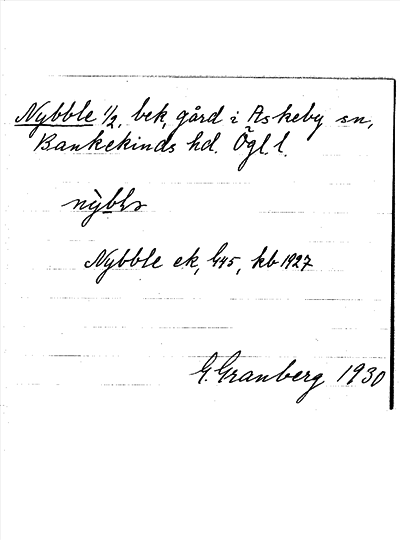 Nybble ½, bek, gård i Askeby sn,
Bankekinds hd. Ögl. l.
Nybble ek, G45, kb 1927
G. Granberg 1930